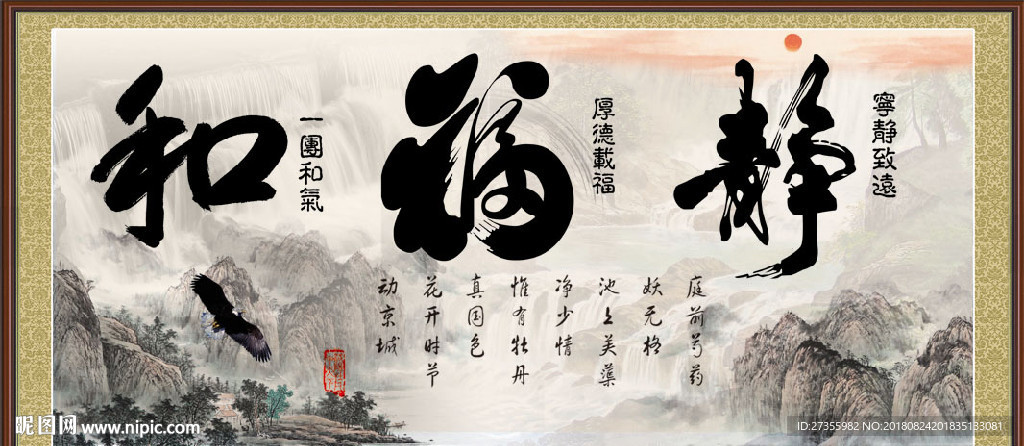 寧静致遠
静
厚德載福
福
一團和氣
和
庭前芍药
妖无格
池上芙蕖
净少情
惟有牡丹
真国色
花开时节
动京城
昵图网 www.nipic.com
ID:27355982 NO:20180824201835133081